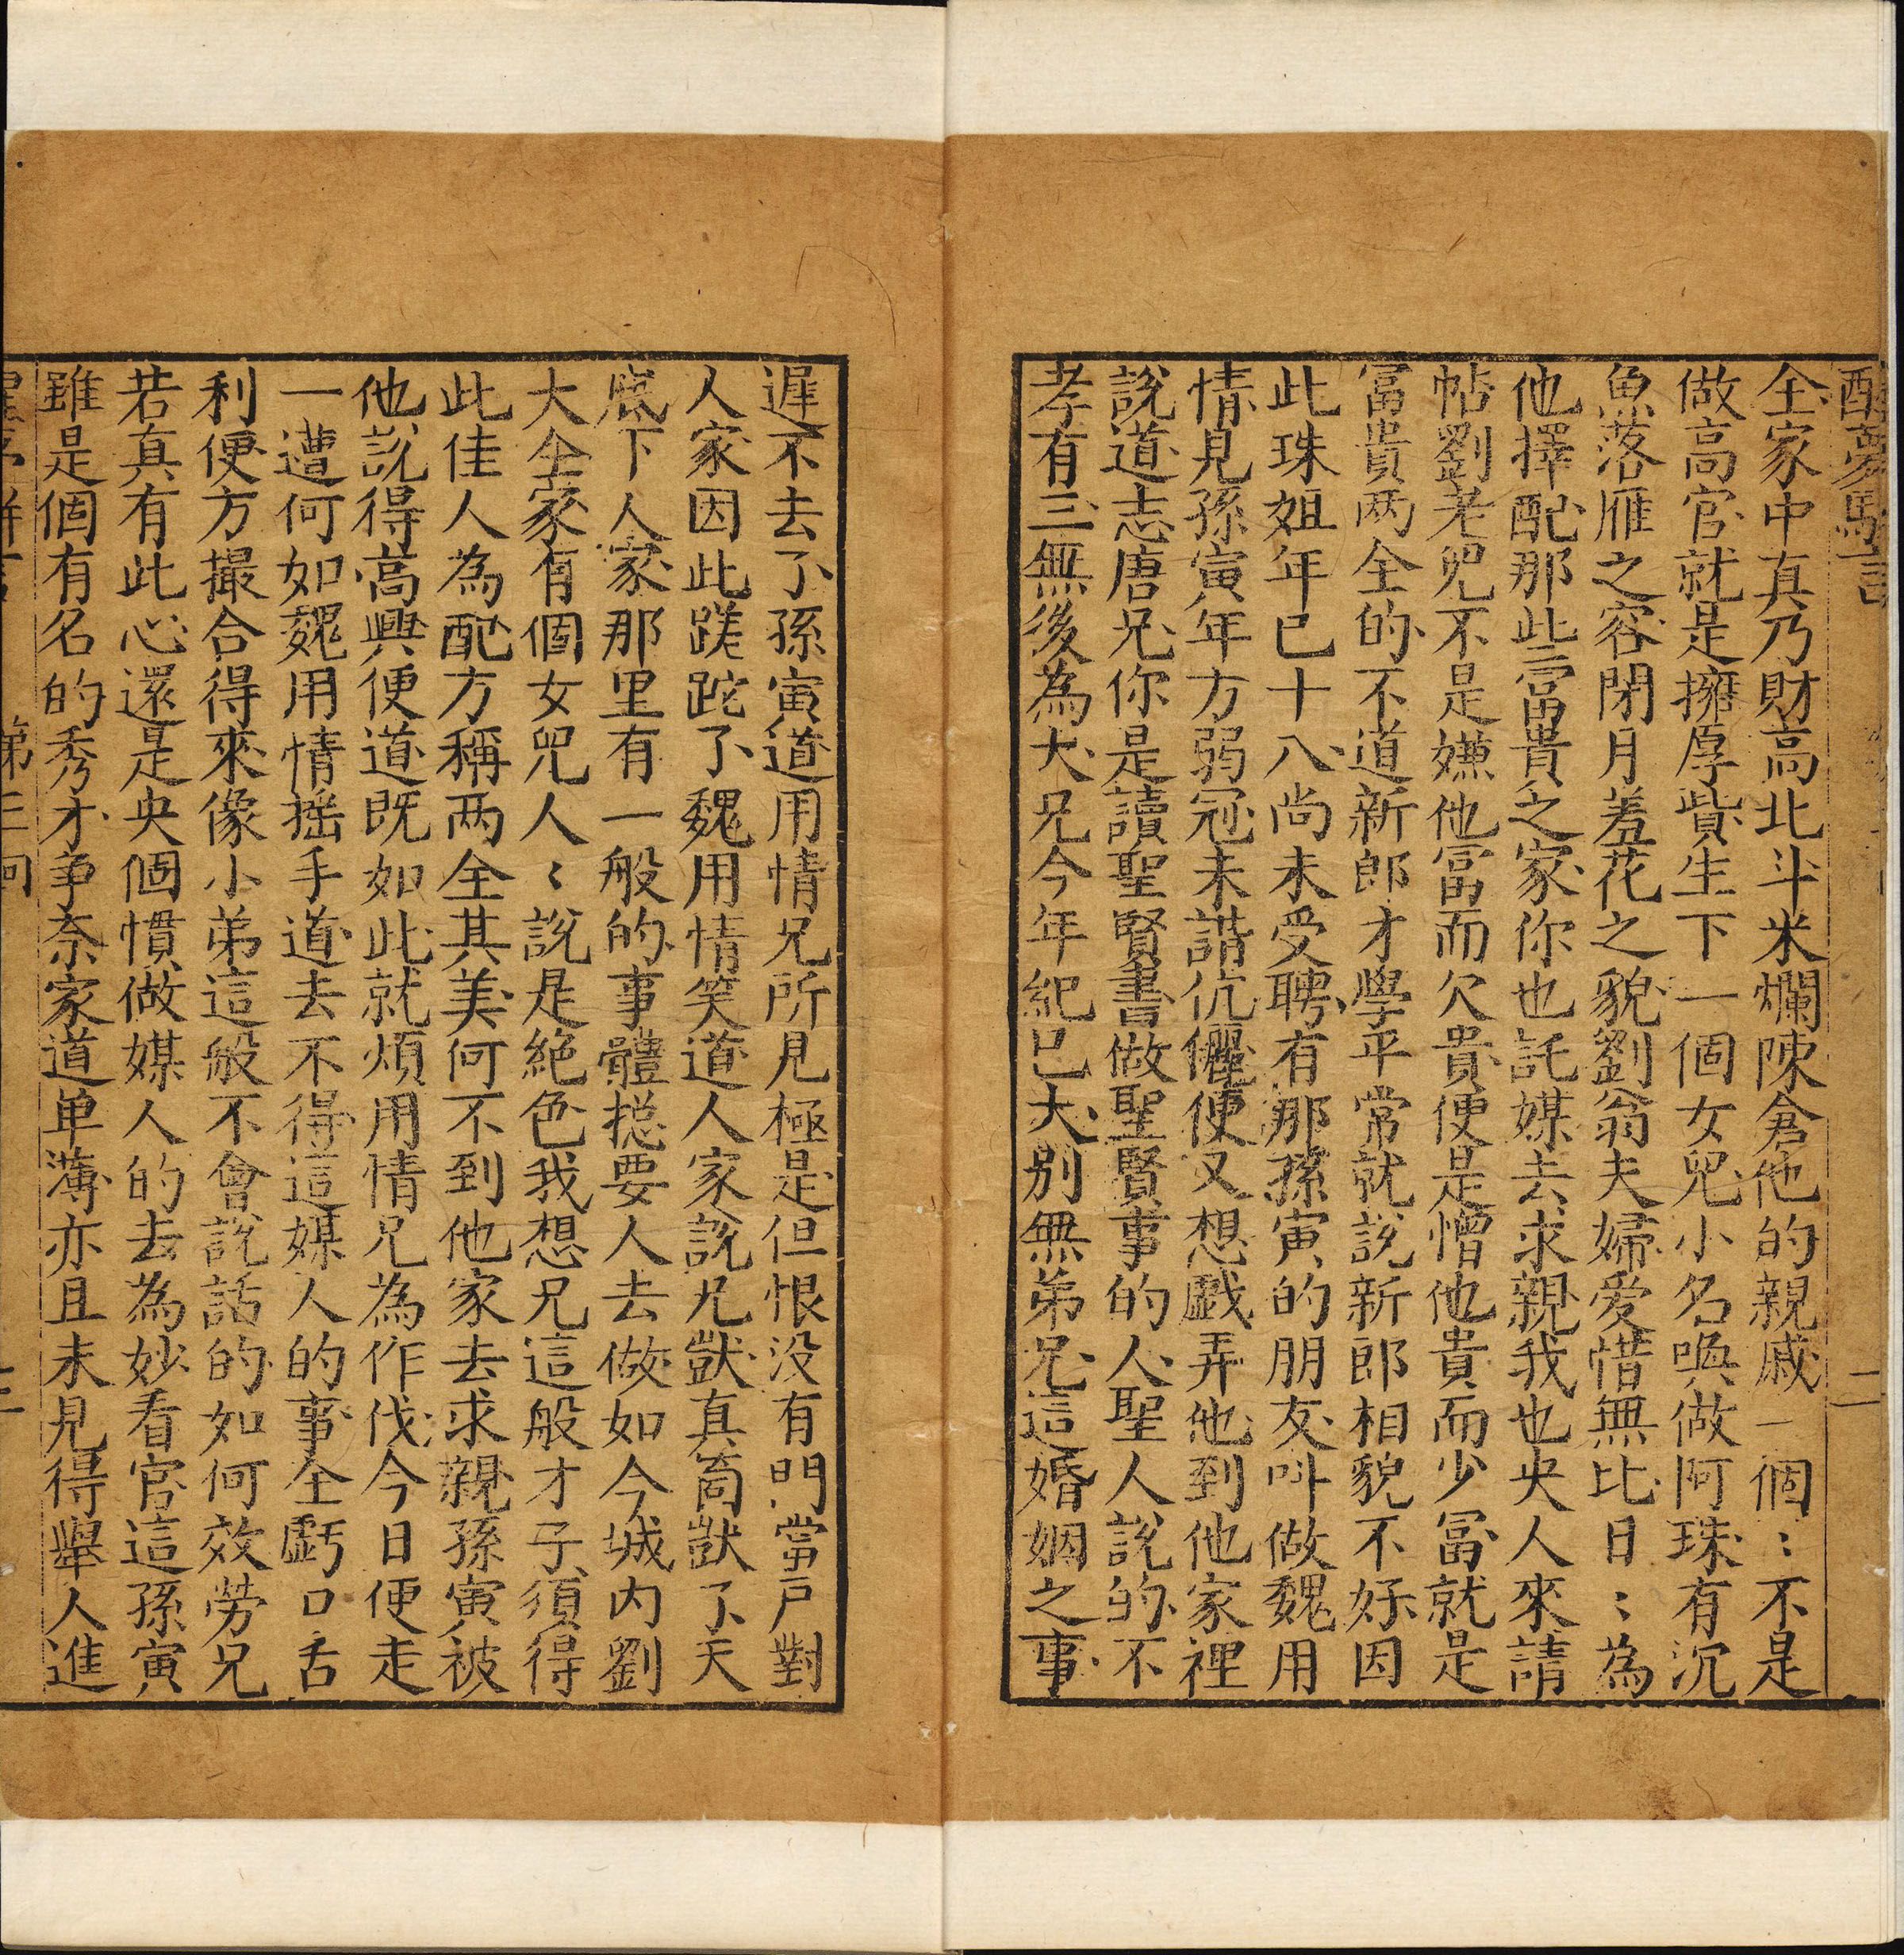 醒夢駢言
二
全家中真乃財高北斗米爛陳倉他的親戚一個〻不是
做高官就是擁厚貲生下一個女兒小名喚做阿珠有沉
魚落雁之容閉月羞花之貌劉翁夫婦愛惜無比日〻為
他擇配那些富貴之家你也託媒去求親我也央人來請
帖劉老兒不是嫌他富而欠貴便是憎他貴而少富就是
富貴两全的不道新郎才學平常就說新郎相貌不好因
此珠姐年已十八尚未受聘有那孫寅的朋友叫做魏用
情見孫寅年方弱冠未諧伉儷便又想戲弄他到他家裡
說道志唐兄你是讀聖賢書做聖賢事的人聖人說的不
孝有三無後為大兄今年紀已大別無弟兄這婚姻之事
遲不去了孫寅道用情兄所見極是但恨没有門當戸對
人家因此蹉跎了魏用情笑道人家說兄獃真箇獃了天
底下人家那里有一般的事體揔要人去做如今城内劉
大全家有個女兒人〻說是絕色我想兄這般才子須得
此佳人為配方稱两全其美何不到他家去求親孫寅被
他說得高興便道既如此就煩用情兄為作伐今日便走
一遭何如魏用情摇手道去不得這媒人的事全虧口舌
利便方撮合得來像小弟這般不會說話的如何效勞兄
若真有此心還是央個慣做媒人的去為妙看官這孫寅
雖是個有名的秀才争奈家道单薄亦且未見得舉人進
第三回